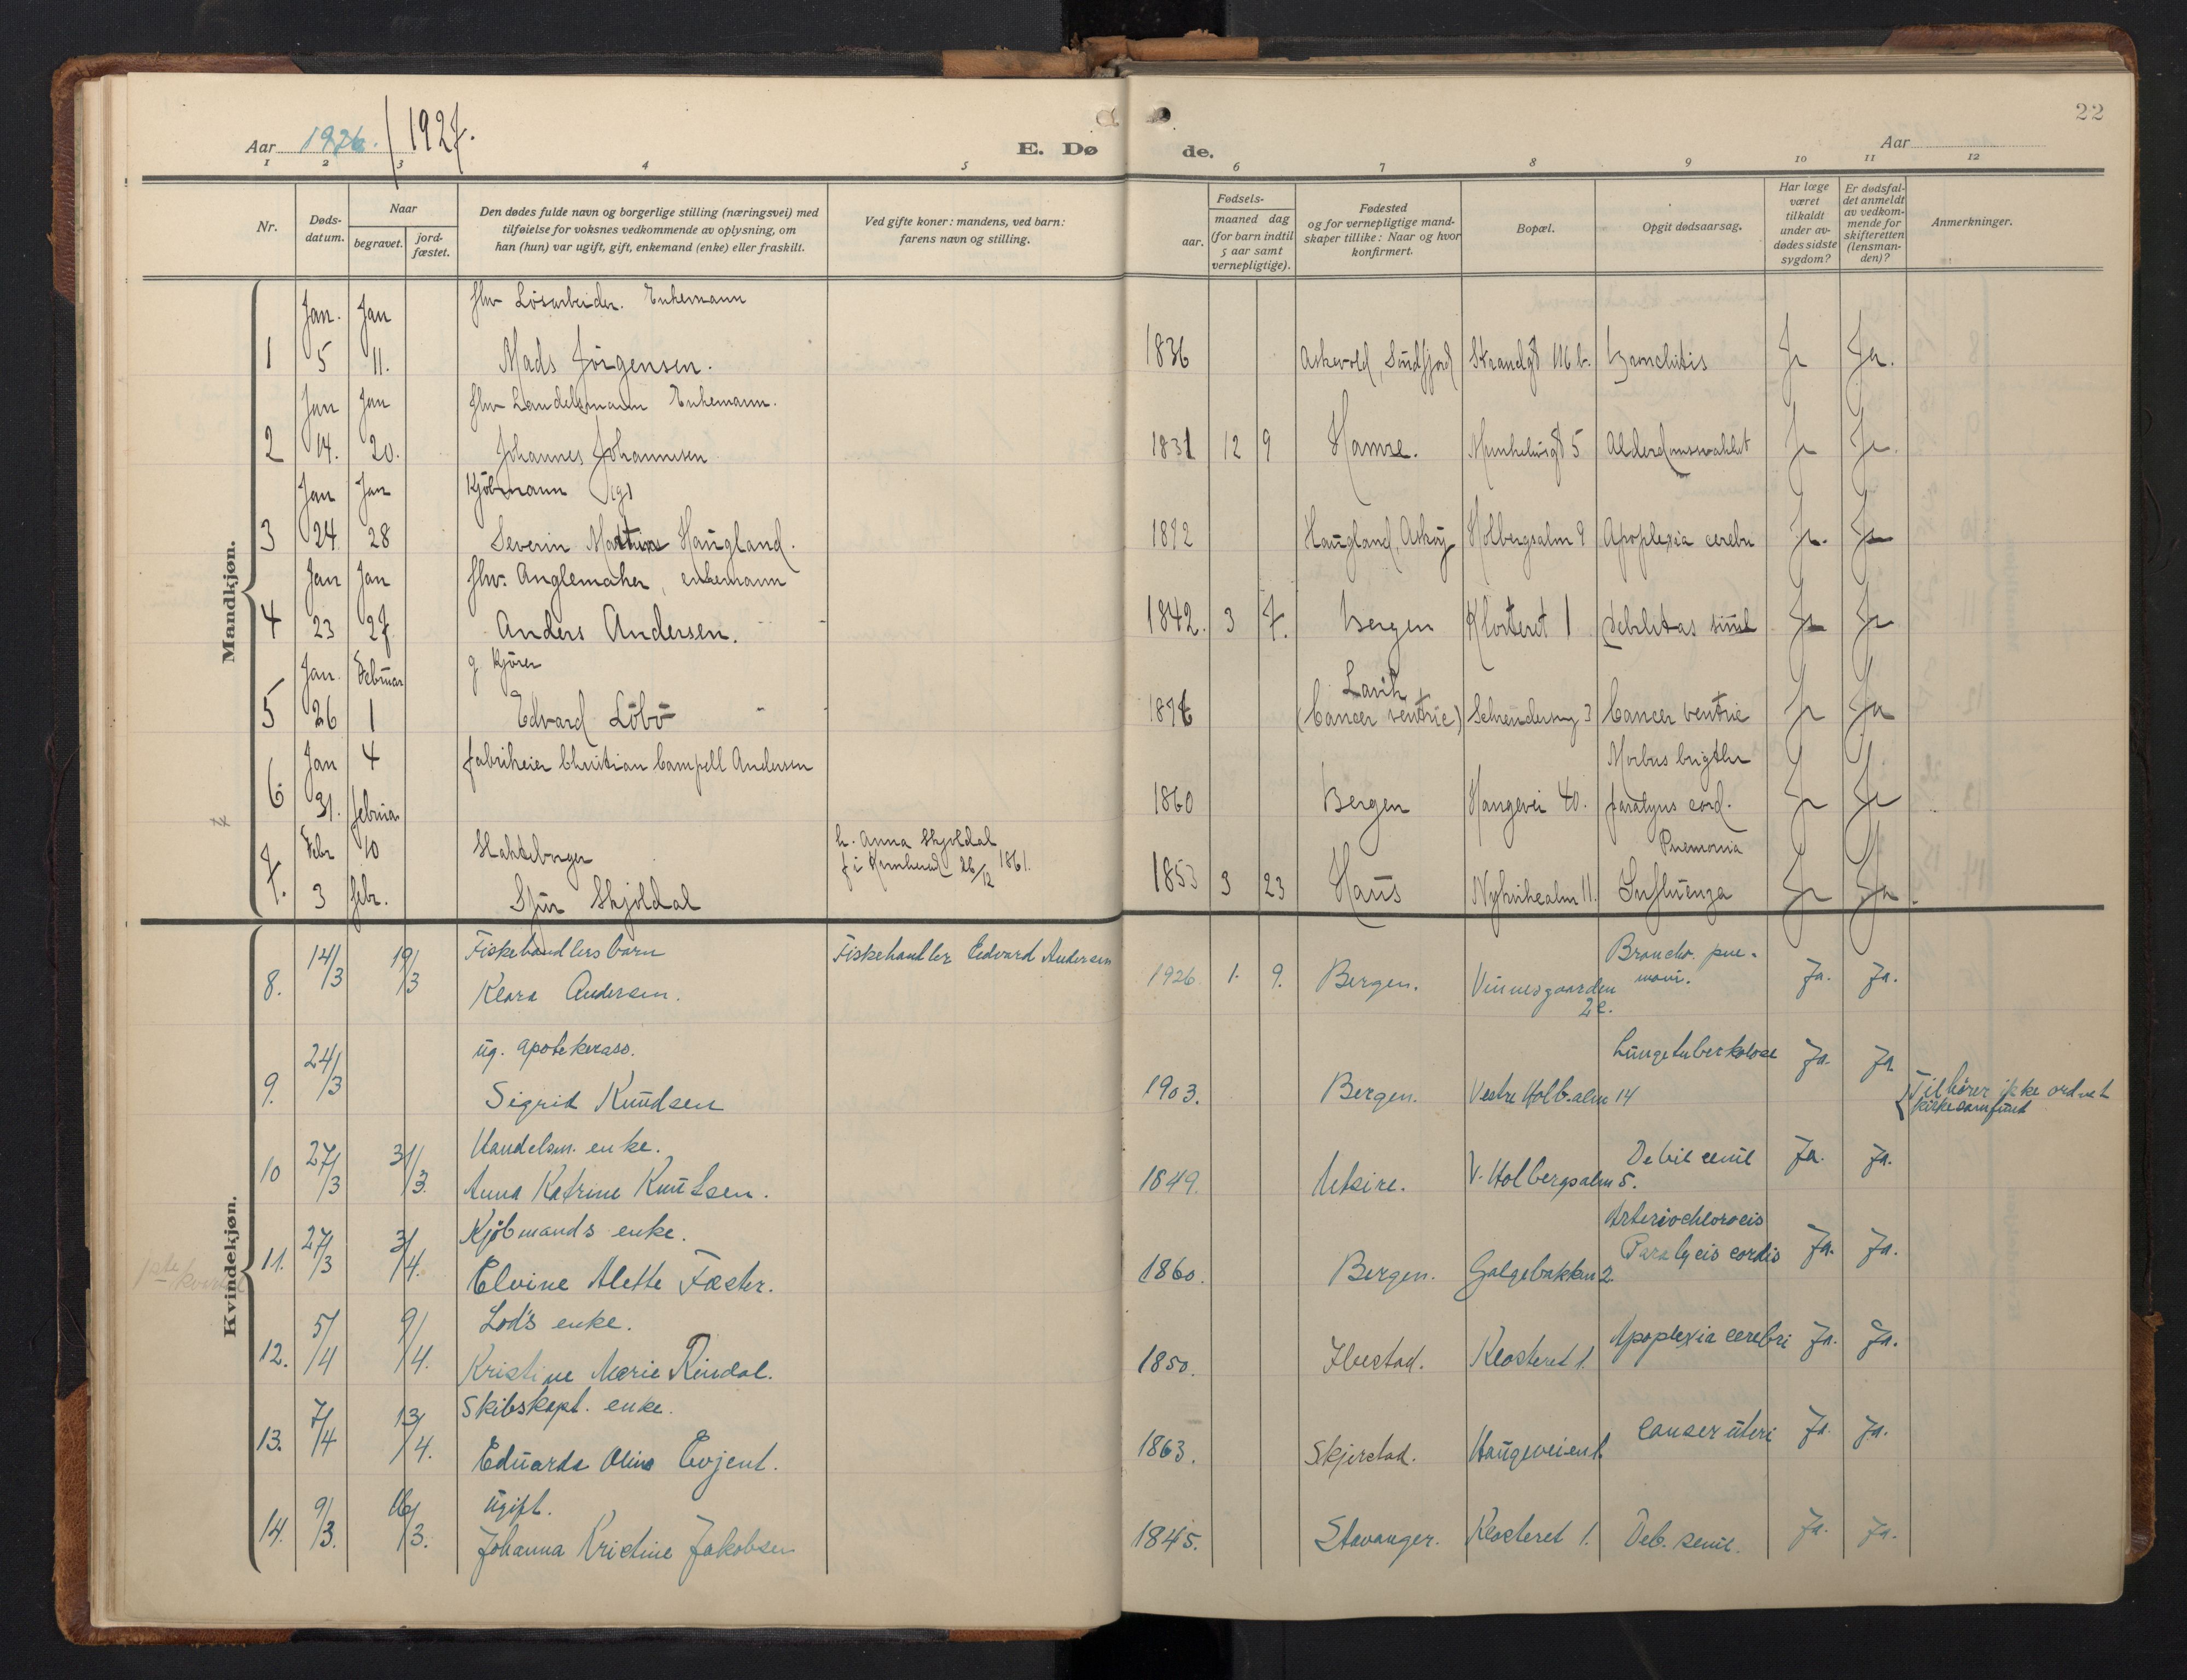 22
Aar 1926. / 1927.
E. Dø de.
Aar
1 2 3 4 5 6 7 8 9 10 11 12
Nr.
Døds-
datum.
Naar
begravet.
jord-
fæstet.
Den dødes fulde navn og borgerlige stilling (næringsvei) med
tilføielse for voksnes vedkommende av oplysning, om
han (hun) var ugift, gift, enkemand (enke) eller fraskilt.
Ved gifte koner: mandens, ved barn:
farens navn og stilling.
Fødsels-
aar.
maaned dag
(for barn indtil
5 aar samt
vernepligtige).
Fødested
og for vernepligtige mand-
skaper tillike: Naar og hvor
konfirmert.
Bopæl.
Opgit dødsaarsag.
Har læge
været
tilkaldt
under av-
dødes sidste
sygdom?
Er dødsfal-
det anmeldt
av vedkom-
mende for
skifteretten
(lensman-
den)?
Anmerkninger.
Mandkjøn.
Jan. Jan fhv Løsarbeider. Enkemann
1 5 11. Mads Jörgensen. 1836 Askevold, Sündfjord Strandgt 116 b. bronchitis Ja Ja.
Jan Jan fhv Handelsmann Enkemann.
2 14. 20. Johannes Johannesen 1831 12 9 Hamre. 5 Ja Ja.
Jan Jan Kjöbmann
3 24 28 Severin Haügland. Haügland, Asköy Holbergsalm 9 Apoplexia cerebri Ja. Ja
Jan Jan fhv. enkemann
4 23 27. Anders Andersen. 1842. 3 7. Bergen Klosteret 1 Debilitas Ja Ja
Jan. Februar g Kjörer Lavik
5 26 1 Edvard Löbö (Cancer ventric) 3 Cancer ventric Ja Ja
Jan 4 fabrikeier Christian Campell Andersen Morbus
6 31. februar 1860 Bergen Haugevei 40. cord. Ja Ja
Febr 10 h. Anna Skjoldal Pnemonia
f i 26/12 1861.
7. 3 febr. Skjoldal 1853 3 23 Haüs Nykirkealm 11. Influenza Ja Ja.
Kvindekjøn.
1ste kvartal
14/3 19/3 Fiskehandlers barn Fiskehandler Eedvard Andersen Broncho. pne-
8. Klara Andersen. 1926 1. 9. Bergen. Vinnesgaarden moni. Ja. Ja.
2 c.
24/3 üg. apotekerass. Lüngetuberkolose Ja. Ja
9. Sigrid Knüdsen 1903. Bergen. Vestre Holb.alm 14 Tilhörer ikke ordnet
kirkesamfund
27/3 31/3. Handelsm. enke. Debil senil Ja. Ja.
10 Anna Katrine Knütsen. 1849. Utsire. V. Holbergsalm 5.
27/3 3/4. Kjöbmands enke. Arteriochlorosis
11. Elvine Alette Fæster. 1860. Bergen. Galgebakken 2. Paralysis cordis Ja. Ja.
5/4 9/4. Lods enke. Apoplexia cerebri Ja. Ja.
12. Kristine Marie Rindal. 1850. Ibestad. Klosteret 1.
7/4 13/4. Skibskapt. enke. Canser üteri Ja. Ja.
13. Edüarda Oline Evjent. 1863. Skjerstad. Haügeveien 1.
9/3. 16/3. ügift.
14. Johanna Kristine Jakobsen 1845. Stavanger. Klosteret 1. Deb. senil. Ja. Ja.